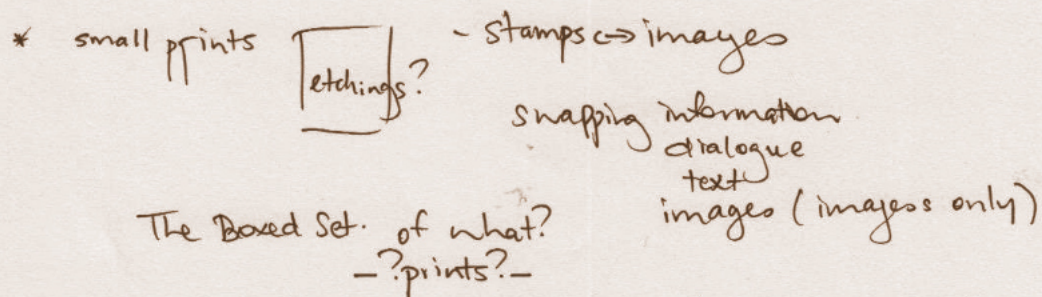 * small prints etchings? - stamps ↔ images
snapping information
dialogue
text
images (imagess only)
The Boxed Set. of what?
- ?prints? -